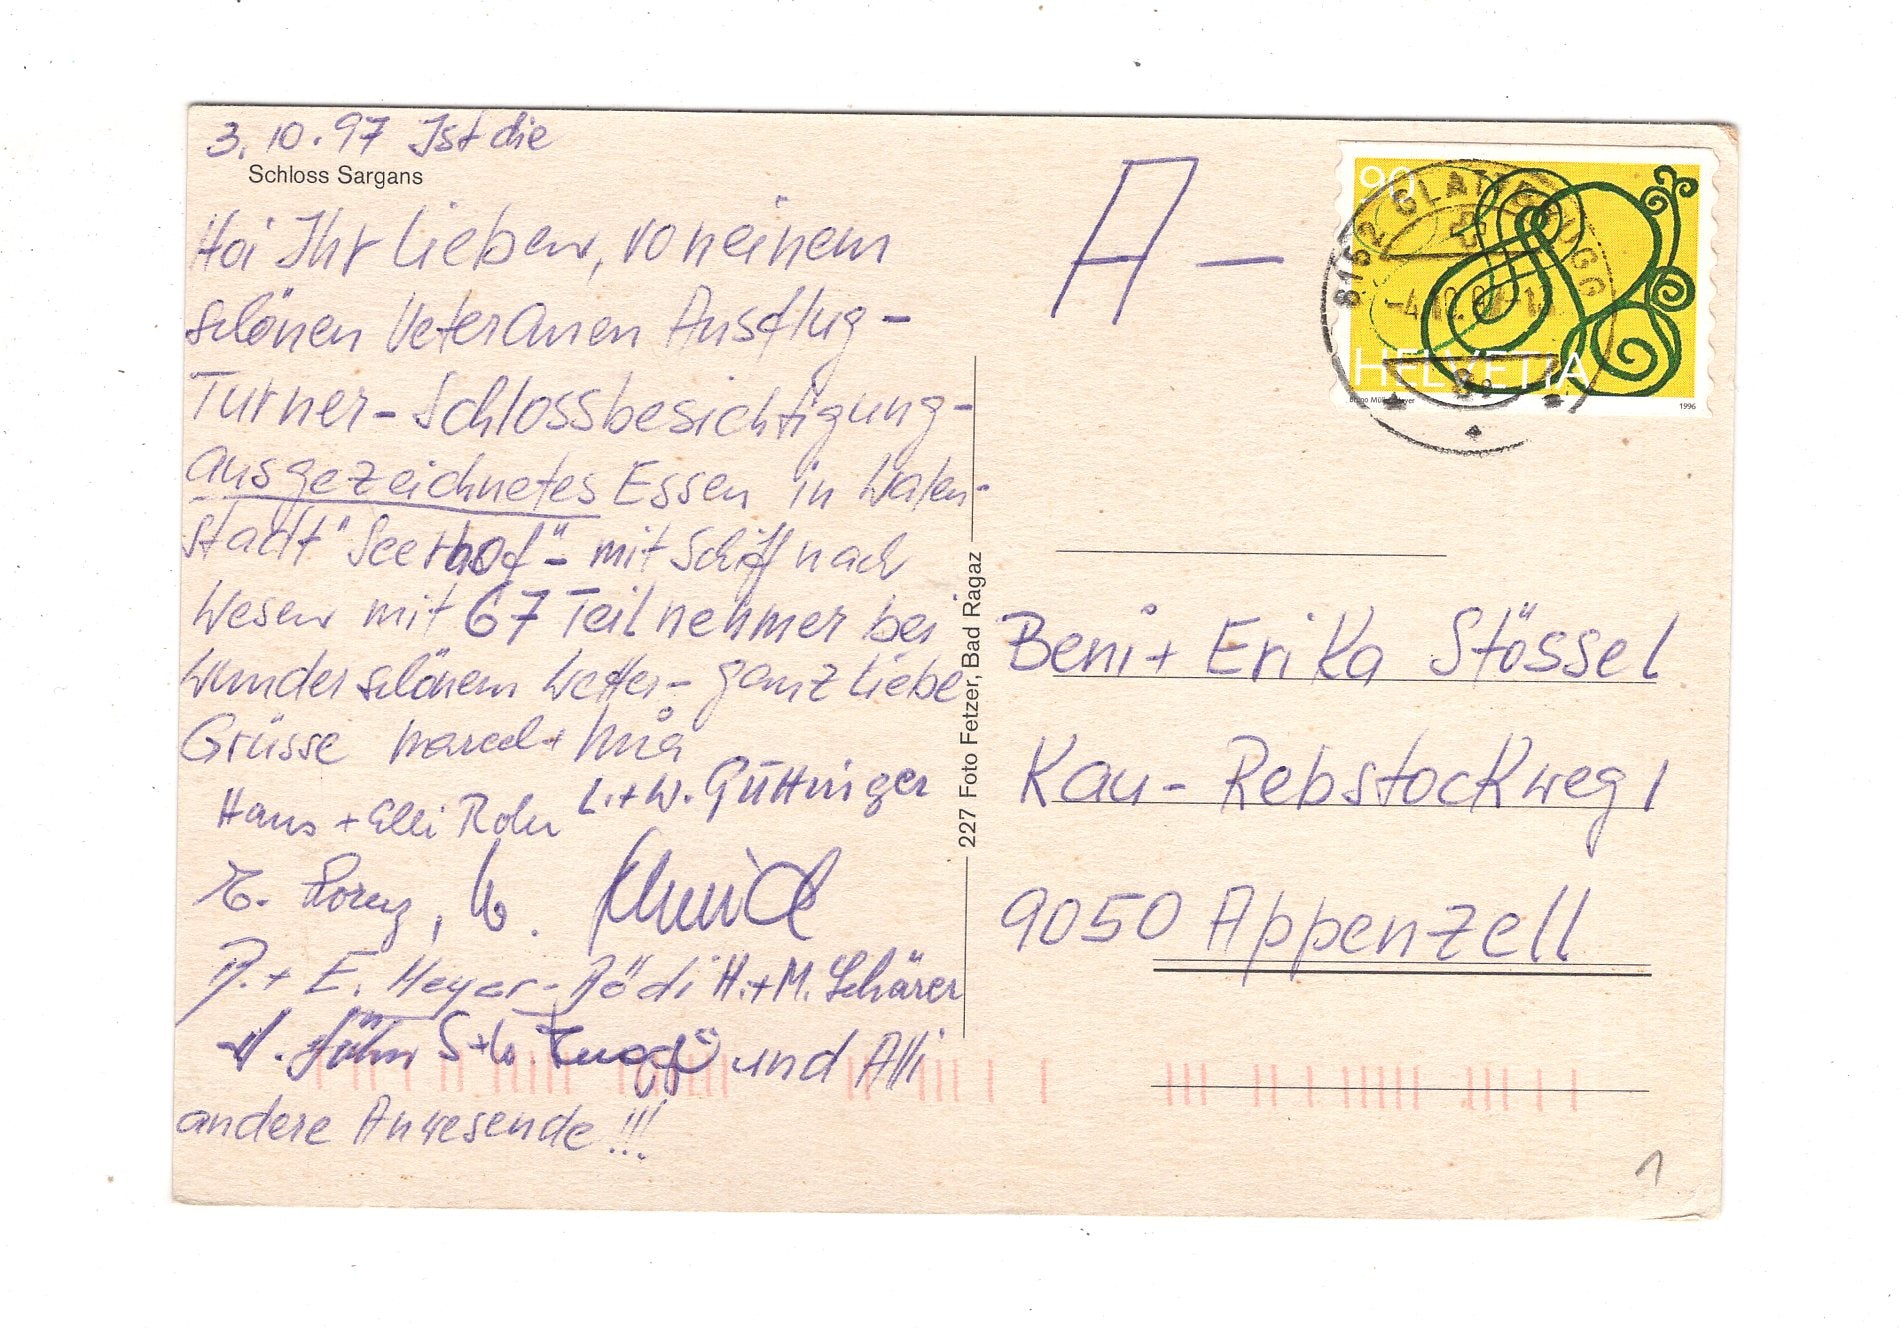 3.10.97 Ist die
Schloss Sargans
Hoi Ihr Lieben, von einem
schönen Veteranen Ausflug-
Turner-Schlossbesichtigung-
ausgezeichnetes Essen in Walen-
stadt "Seehof" - mit Schiff nach
Wesen mit 67 Teilnehmer bei
wunderschönem Wetter - ganz liebe
Grüsse Marcel +
Hans + Elli Rohr L.+W. Güttinger
Lorenz,
P.+ E. Meyer-Bödi H.+M. Schärer
und Alli
andere Anwesende !!!
227 Foto Fetzer, Bad Ragaz
A-
90
HELVETIA
1996
8152 GLATTBRUGG
Beni + Erika Stössel
Kau- Rebstockweg 1
9050 Appenzell
1